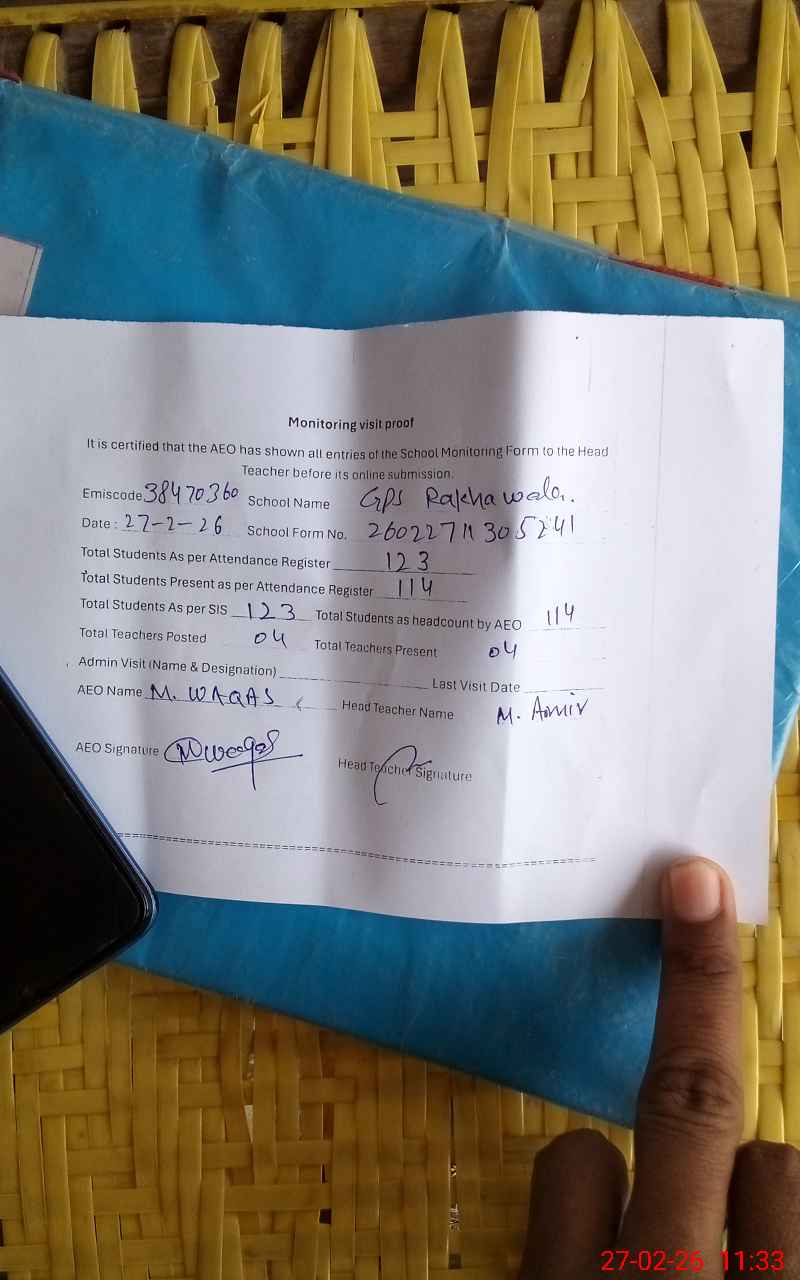 Monitoring visit proof
It is certified that the AEO has shown all entries of the School Monitoring Form to the Head
Teacher before its online submission.
Emiscode 38470360 School Name GPS Rakhawala.
Date : 27-2-26 School Form No. 26022711305241
Total Students As per Attendance Register 123
Total Students Present as per Attendance Register 114
Total Students As per SIS 123 Total Students as headcount by AEO 114
Total Teachers Posted 04 Total Teachers Present 04
Admin Visit (Name & Designation) Last Visit Date
AEO Name M. WAQAS Head Teacher Name M. Aamir
AEO Signature Mwaqas Head Teacher Signature
27-02-26 11:33